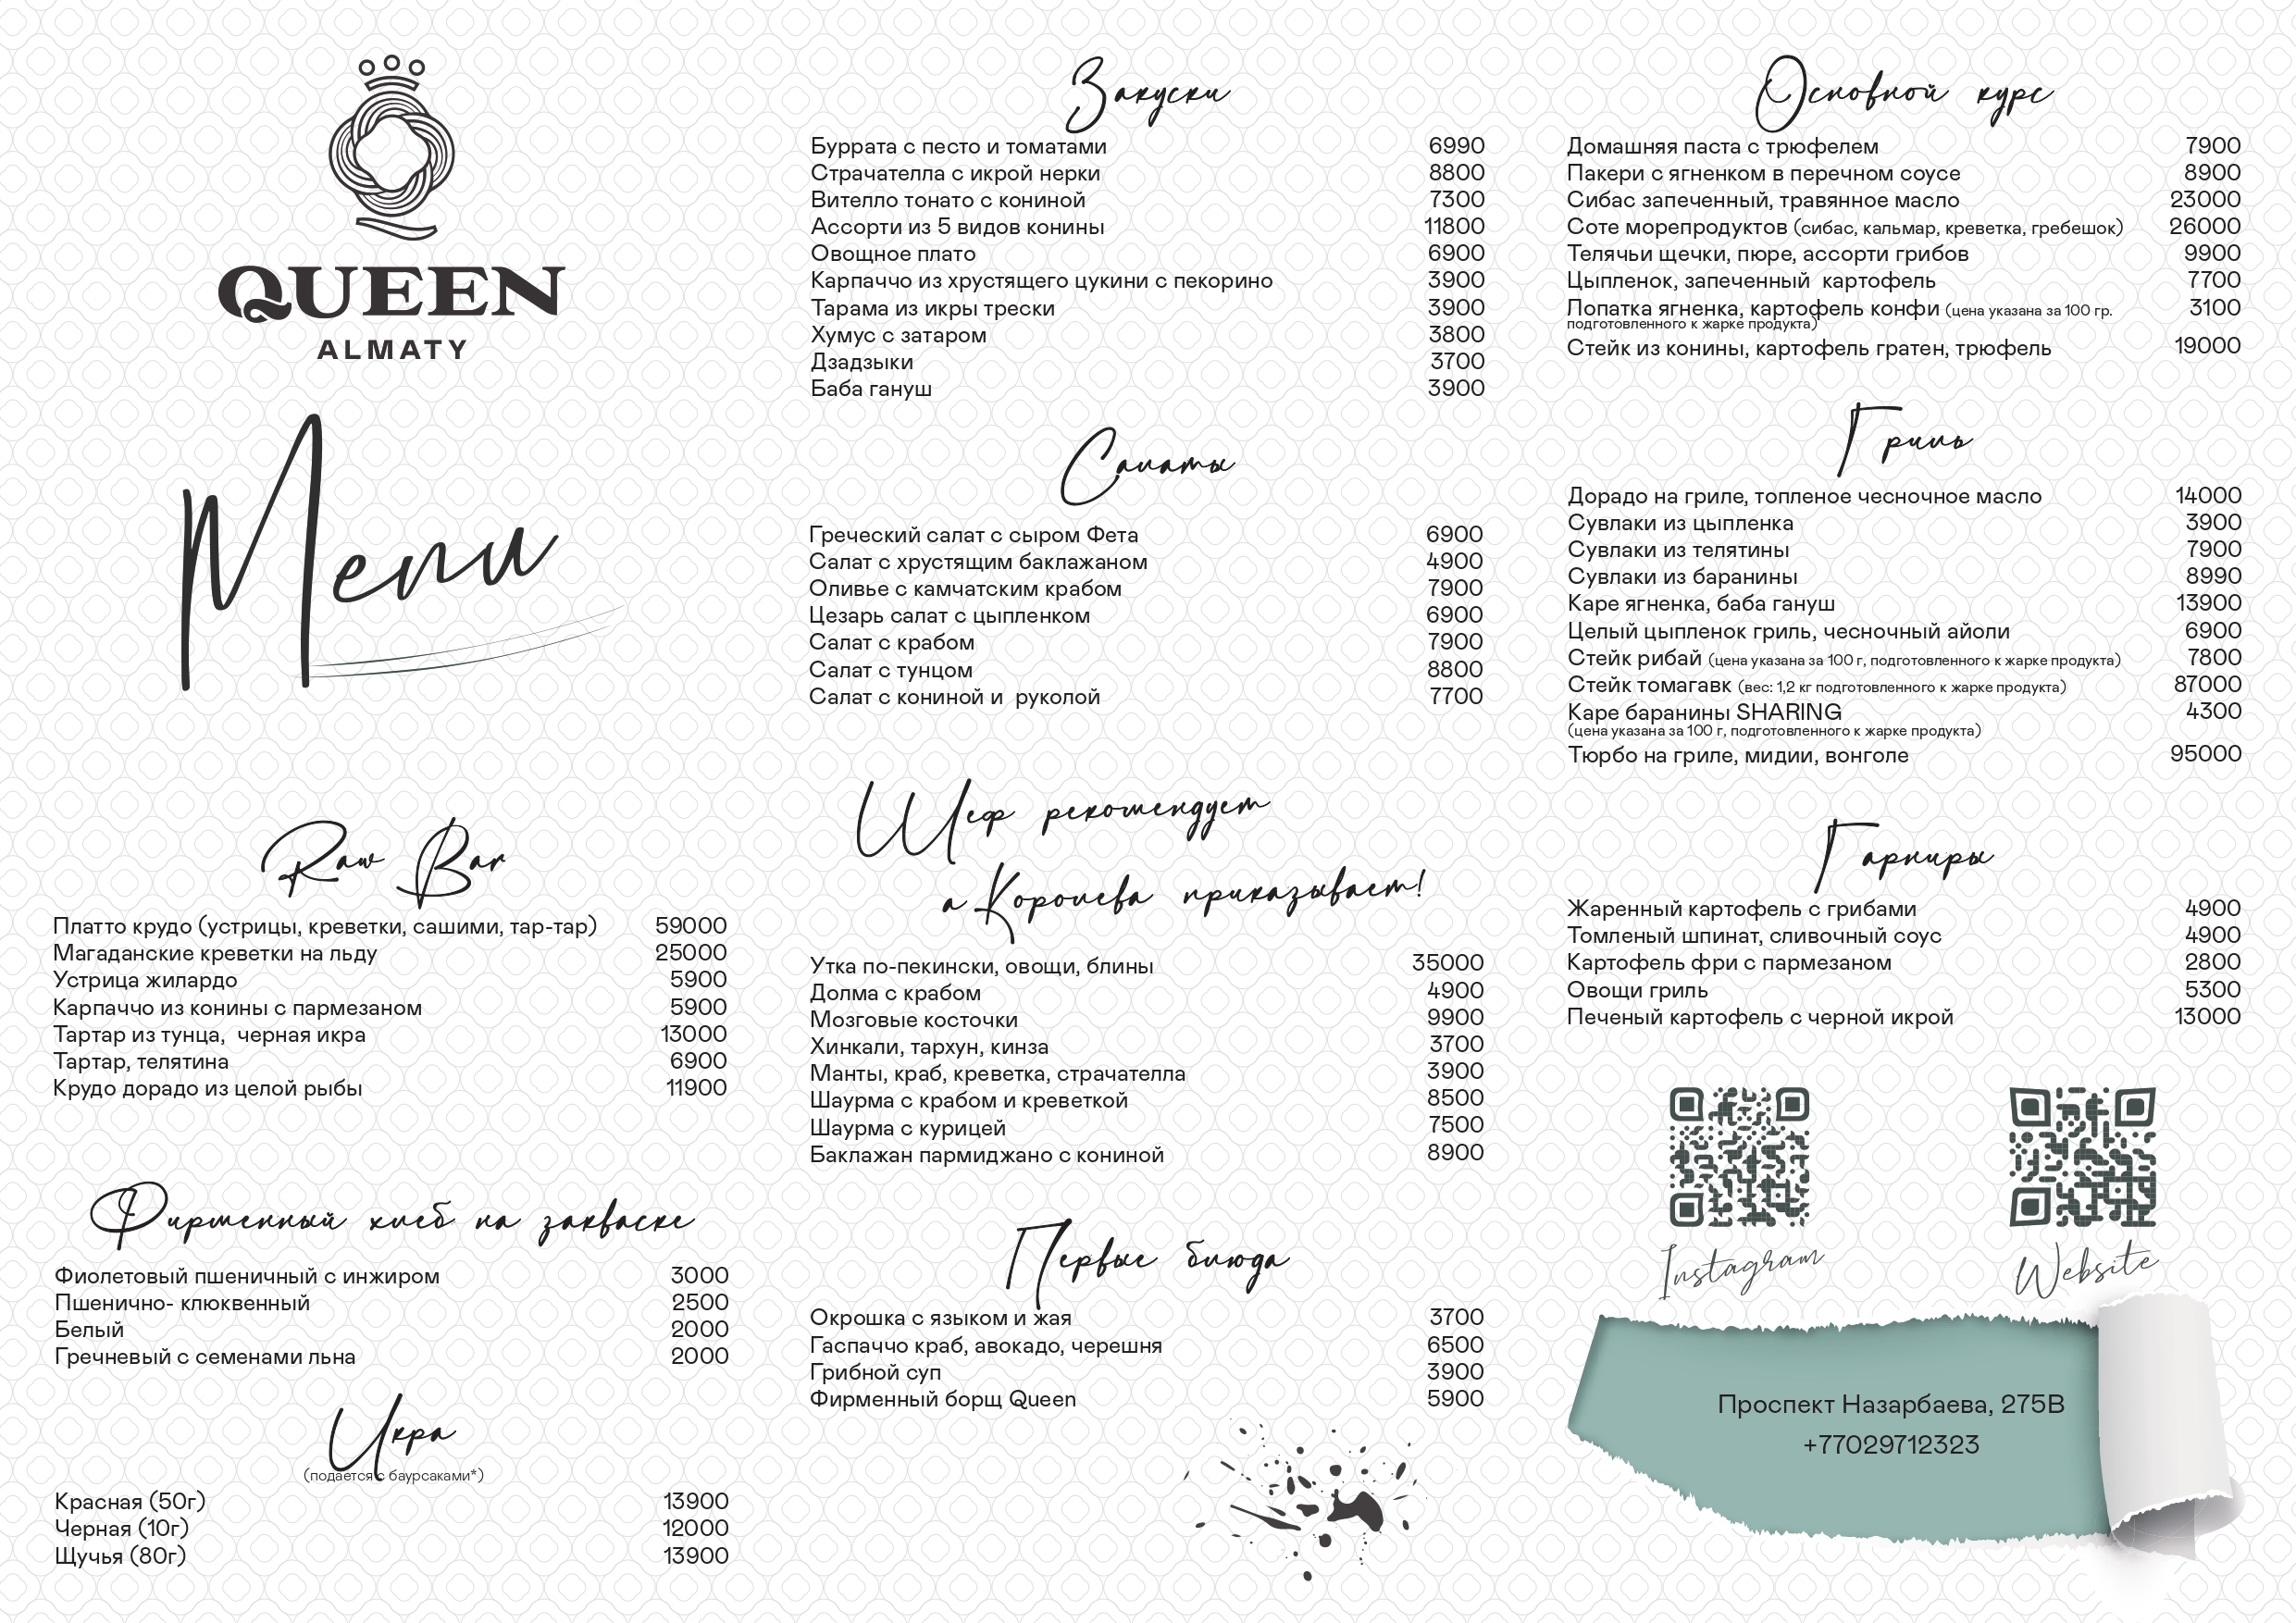 QUEEN
ALMATY
Menu
Raw Bar
Платто крудо (устрицы, креветки, сашими, тар-тар) 59000
Магаданские креветки на льду 25000
Устрица жилардо 5900
Карпаччо из конины с пармезаном 5900
Тартар из тунца, черная икра 13000
Тартар, телятина 6900
Крудо дорадо из целой рыбы 11900
Фирменный хлеб на закваске
Фиолетовый пшеничный с инжиром 3000
Пшенично- клюквенный 2500
Белый 2000
Гречневый с семенами льна 2000
Икра
(подается с баурсаками*)
Красная (50г) 13900
Черная (10г) 12000
Щучья (80г) 13900
Закуски
Буррата с песто и томатами 6990
Страчателла с икрой нерки 8800
Вителло тонато с кониной 7300
Ассорти из 5 видов конины 11800
Овощное плато 6900
Карпаччо из хрустящего цукини с пекорино 3900
Тарама из икры трески 3900
Хумус с затаром 3800
Дзадзыки 3700
Баба гануш 3900
Салаты
Греческий салат с сыром Фета 6900
Салат с хрустящим баклажаном 4900
Оливье с камчатским крабом 7900
Цезарь салат с цыпленком 6900
Салат с крабом 7900
Салат с тунцом 8800
Салат с кониной и руколой 7700
Шеф рекомендует
а Королева приказывает!
Утка по-пекински, овощи, блины 35000
Долма с крабом 4900
Мозговые косточки 9900
Хинкали, тархун, кинза 3700
Манты, краб, креветка, страчателла 3900
Шаурма с крабом и креветкой 8500
Шаурма с курицей 7500
Баклажан пармиджано с кониной 8900
Первые блюда
Окрошка с языком и жая 3700
Гаспаччо краб, авокадо, черешня 6500
Грибной суп 3900
Фирменный борщ Queen 5900
Основной курс
Домашняя паста с трюфелем 7900
Пакери с ягненком в перечном соусе 8900
Сибас запеченный, травянное масло 23000
Соте морепродуктов (сибас, кальмар, креветка, гребешок) 26000
Телячьи щечки, пюре, ассорти грибов 9900
Цыпленок, запеченный картофель 7700
Лопатка ягненка, картофель конфи (цена указана за 100 гр. 3100
подготовленного к жарке продукта)
Стейк из конины, картофель гратен, трюфель 19000
Гриль
Дорадо на гриле, топленое чесночное масло 14000
Сувлаки из цыпленка 3900
Сувлаки из телятины 7900
Сувлаки из баранины 8990
Каре ягненка, баба гануш 13900
Целый цыпленок гриль, чесночный айоли 6900
Стейк рибай (цена указана за 100 г, подготовленного к жарке продукта) 7800
Стейк томагавк (вес: 1,2 кг подготовленного к жарке продукта) 87000
Каре баранины SHARING 4300
(цена указана за 100 г, подготовленного к жарке продукта)
Тюрбо на гриле, мидии, вонголе 95000
Гарниры
Жаренный картофель с грибами 4900
Томленый шпинат, сливочный соус 4900
Картофель фри с пармезаном 2800
Овощи гриль 5300
Печеный картофель с черной икрой 13000
Instagram Website
Проспект Назарбаева, 275В
+77029712323